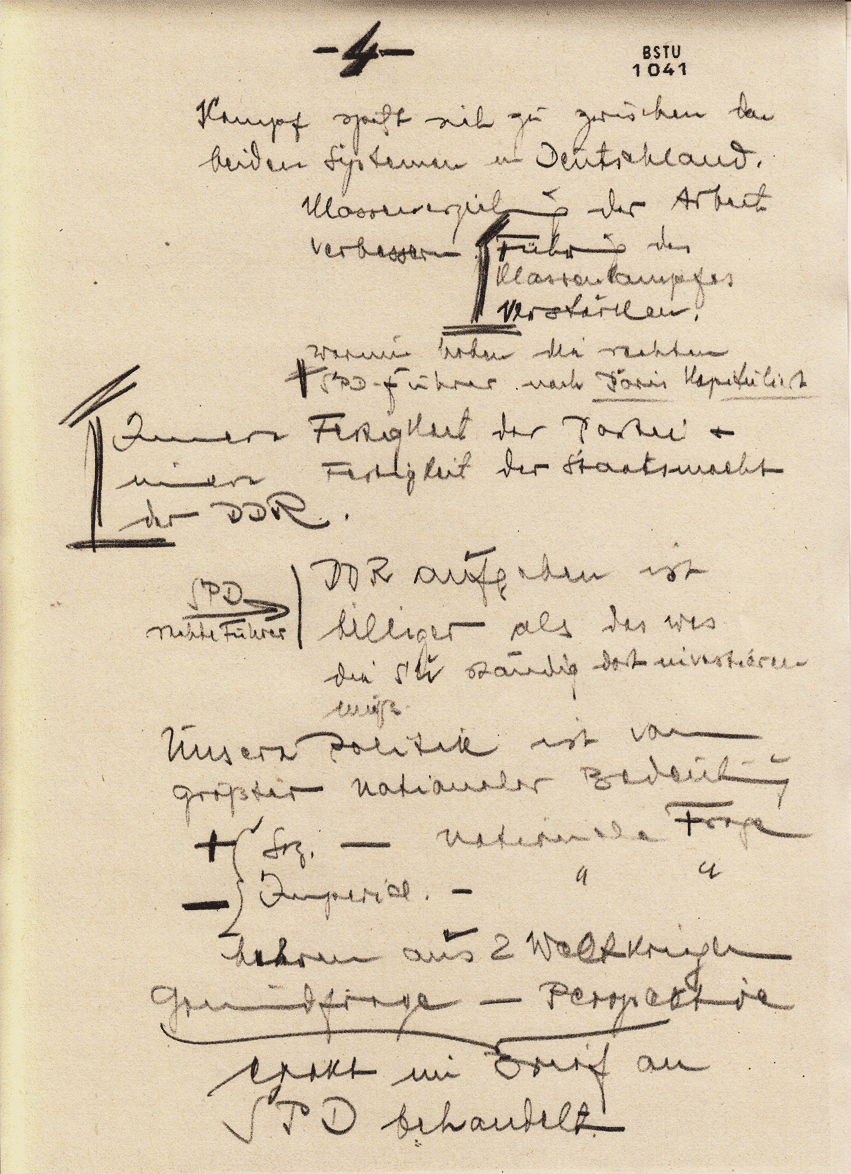 -4-
BSTU
1041
Kampf spitzt sich zu zwischen den
beiden Systemen in Deutschland.
Massenerziehung der Arbeit
verbessern. Führung des
Klassenkampfes
verstärken.
warum haben die rechten
SPD-Führer nach Paris kapituliert
Innere Festigkeit der Partei +
innere Festigkeit der Staatsmacht
der DDR.
SPD
rechte Führer
DDR aufgeben ist
billiger als das was
die SU ständig dort investieren
muß.
Unsere Politik ist von
größter nationaler Bedeutung
+ { Soz. — nationale Frage
— { Imperial. — " "
Lehren aus 2 Weltkriegen
Grundfrage — Perspektive
exakt im Brief an
SPD behandelt.